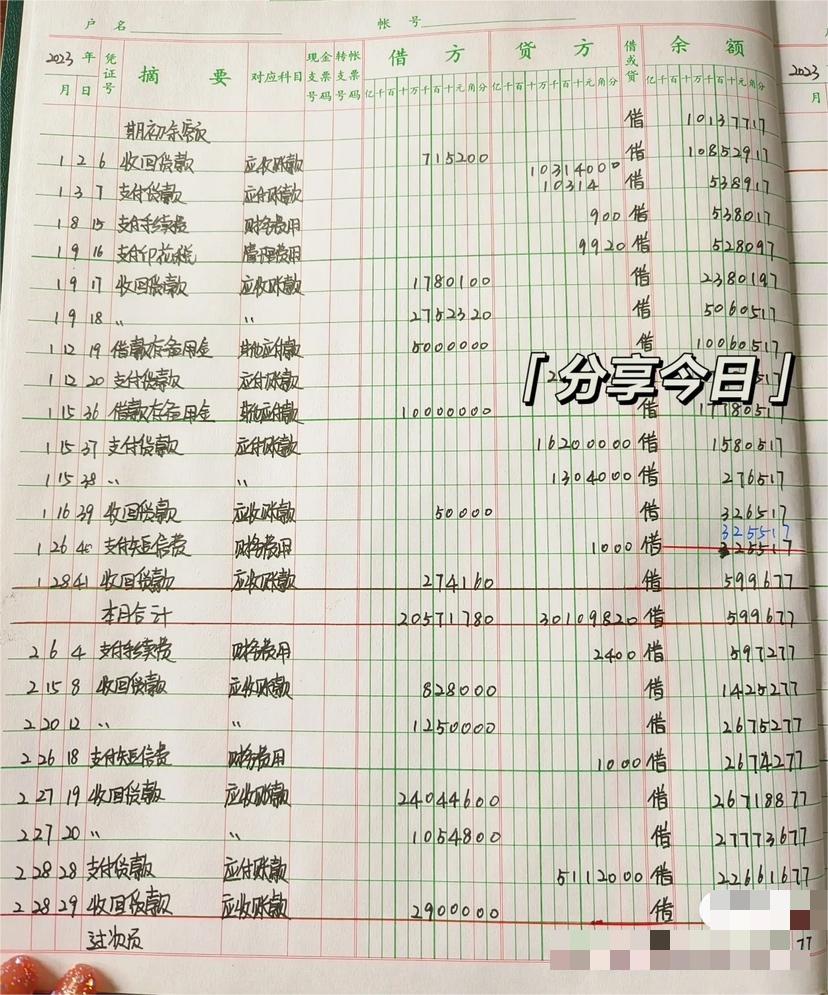 户 名 帐 号
2023 年 凭证号 摘 要 对应科目 现金支票号码 转帐支票号码 借 方 贷 方 借或贷 余 额 2023
月 日 亿千百十万千百十元角分 亿千百十万千百十元角分 亿千百十万千百十元角分 月
期初余额 借 10137717
1 2 6 收回货款 应收账款 715200 借 10852917
10314000
1 3 7 支付货款 应付账款 10314 借 538917
1 8 15 支付手续费 财务费用 900 借 538017
1 9 16 支付印花税 管理费用 9920 借 528097
1 9 17 收回货款 应收账款 1780100 借 2380197
1 9 18 〃 〃 2752320 借 5060517
1 12 19 借款存备用金 其他应付款 5000000 借 10060517
「分享今日」
1 12 20 支付货款 应付账款
1 15 36 借款存备用金 其他应付款 10000000 借 17780517
1 15 37 支付货款 应付账款 16200000 借 1580517
1 15 38 〃 〃 1304000 借 276517
1 16 39 收回货款 应收账款 50000 借 326517
325517
1 26 40 支付短信费 财务费用 1000 借 325517
1 28 41 收回货款 应收账款 274160 借 599677
本月合计 20571780 30109820 借 599677
2 6 4 支付手续费 财务费用 2400 借 597277
2 15 8 收回货款 应收账款 828000 借 1425277
2 20 12 〃 〃 1250000 借 2675277
2 26 18 支付短信费 财务费用 1000 借 2674277
2 27 19 收回货款 应收账款 24044600 借 26718877
2 27 20 〃 〃 1054800 借 27773677
2 28 28 支付货款 应付账款 5112000 借 22661677
2 28 29 收回货款 应收账款 2900000 借
过次页 77